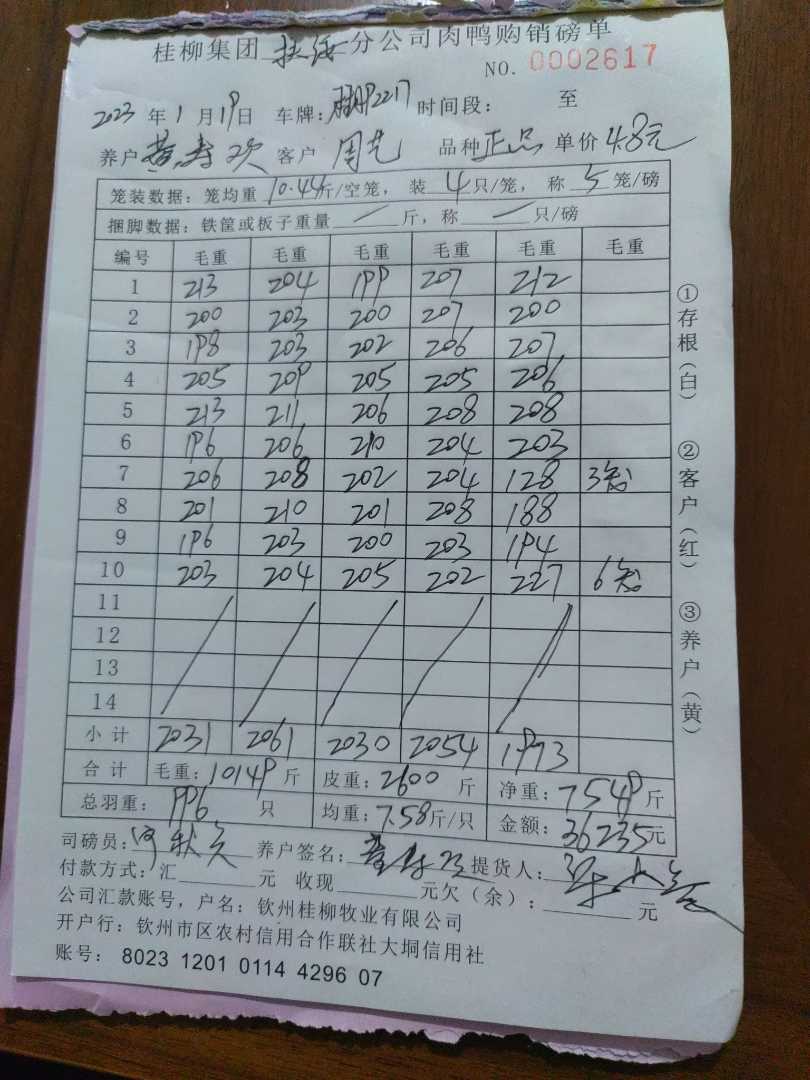 桂柳集团扶绥分公司肉鸭购销磅单
NO. 0002617
2023年1月19日 车牌: 2217 时间段: 至
养户 黄寿欢 客户 周先 品种 正品 单价 4.8元
笼装数据: 笼均重 10.44斤/空笼, 装 4 只/笼, 称 5 笼/磅
捆脚数据: 铁筐或板子重量 — 斤, 称 — 只/磅
编号 毛重 毛重 毛重 毛重 毛重 毛重
1 213 204 199 207 212
2 200 203 200 207 200
3 198 203 202 206 207
4 205 209 205 205 206
5 213 211 206 208 208
6 196 206 210 204 203
7 206 208 202 204 128 3笼
8 201 210 201 208 188
9 196 203 200 203 194
10 203 204 205 202 227 6笼
11
12
13
14
小计 2031 2061 2030 2054 1973
合计 毛重: 10149 斤 皮重: 2600 斤 净重: 7549 斤
总羽重: 996 只 均重: 7.58斤/只 金额: 36235元
司磅员: 养户签名: 黄寿欢 提货人:
付款方式: 汇 元 收现 元欠(余): 元
公司汇款账号, 户名: 钦州桂柳牧业有限公司
开户行: 钦州市区农村信用合作联社大垌信用社
账号: 8023 1201 0114 4296 07
①存根(白) ②客户(红) ③养户(黄)